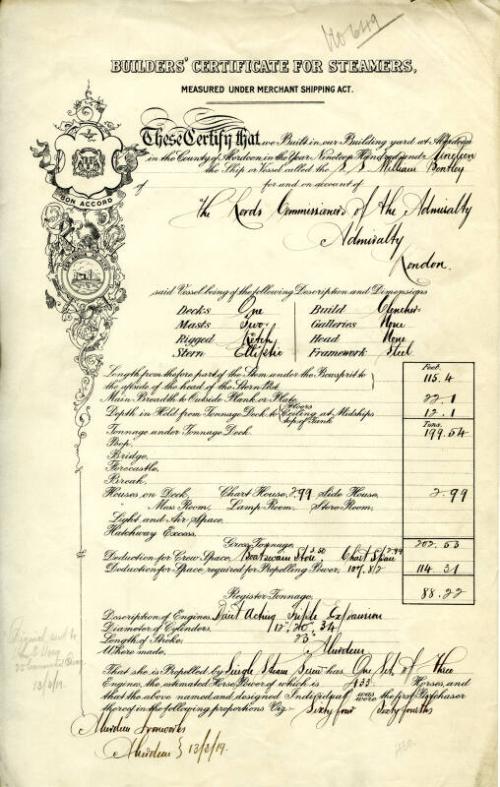 No 649
BUILDERS' CERTIFICATE FOR STEAMERS,
MEASURED UNDER MERCHANT SHIPPING ACT.
These Certify that we Built in our Building yard at Aberdeen
in the County of Aberdeen in the Year Nineteen Hundred and Nineteen
the Ship or Vessel called the S. S. William Bentley
of for and on account of
BON ACCORD
The Lords Commissioners of the Admiralty
Admiralty
London.
said Vessel being of the following Description and Dimensions
Decks One Build Clencher
Masts Two Galleries None
Rigged Ketch Head None
Stern Elliptic Framework Steel
Feet.
Length from the fore part of the Stem under the Bowsprit to
the aftside of the head of the Stern Post 115.4
Main Breadth to Outside Plank or Plate 22.1
Depth in Hold from Tonnage Deck to Ceiling at Midships 12.1
Floors
top of Tank
Tons.
Tonnage under Tonnage Deck 199.54
Poop,
Bridge,
Forecastle,
Break,
Houses on Deck, Chart House, 2.99 Side House, 2.99
Mess Room, Lamp Room, Store Room,
Light and Air Space,
Hatchway Excess,
Gross Tonnage, 202.53
Deduction for Crew Space, Boatswain Store Chart Space 2.99
Deduction for Space required for Propelling Power, 114.31
Register Tonnage, 88.22
Description of Engines, Direct Acting Triple Expansion
Diameter of Cylinders,
Length of Stroke, 23"
Where made, Aberdeen
That she is Propelled by Single Steam Screw has One Set of three
Engine, the estimated Horse Power of which is Horses, and
that the above named and designed Individual were the first Purchaser
thereof in the following proportions Viz:- Sixty four Sixty fourths
Aberdeen Ironworks
Aberdeen } 13/3/19.
Original sent to
13/3/19.